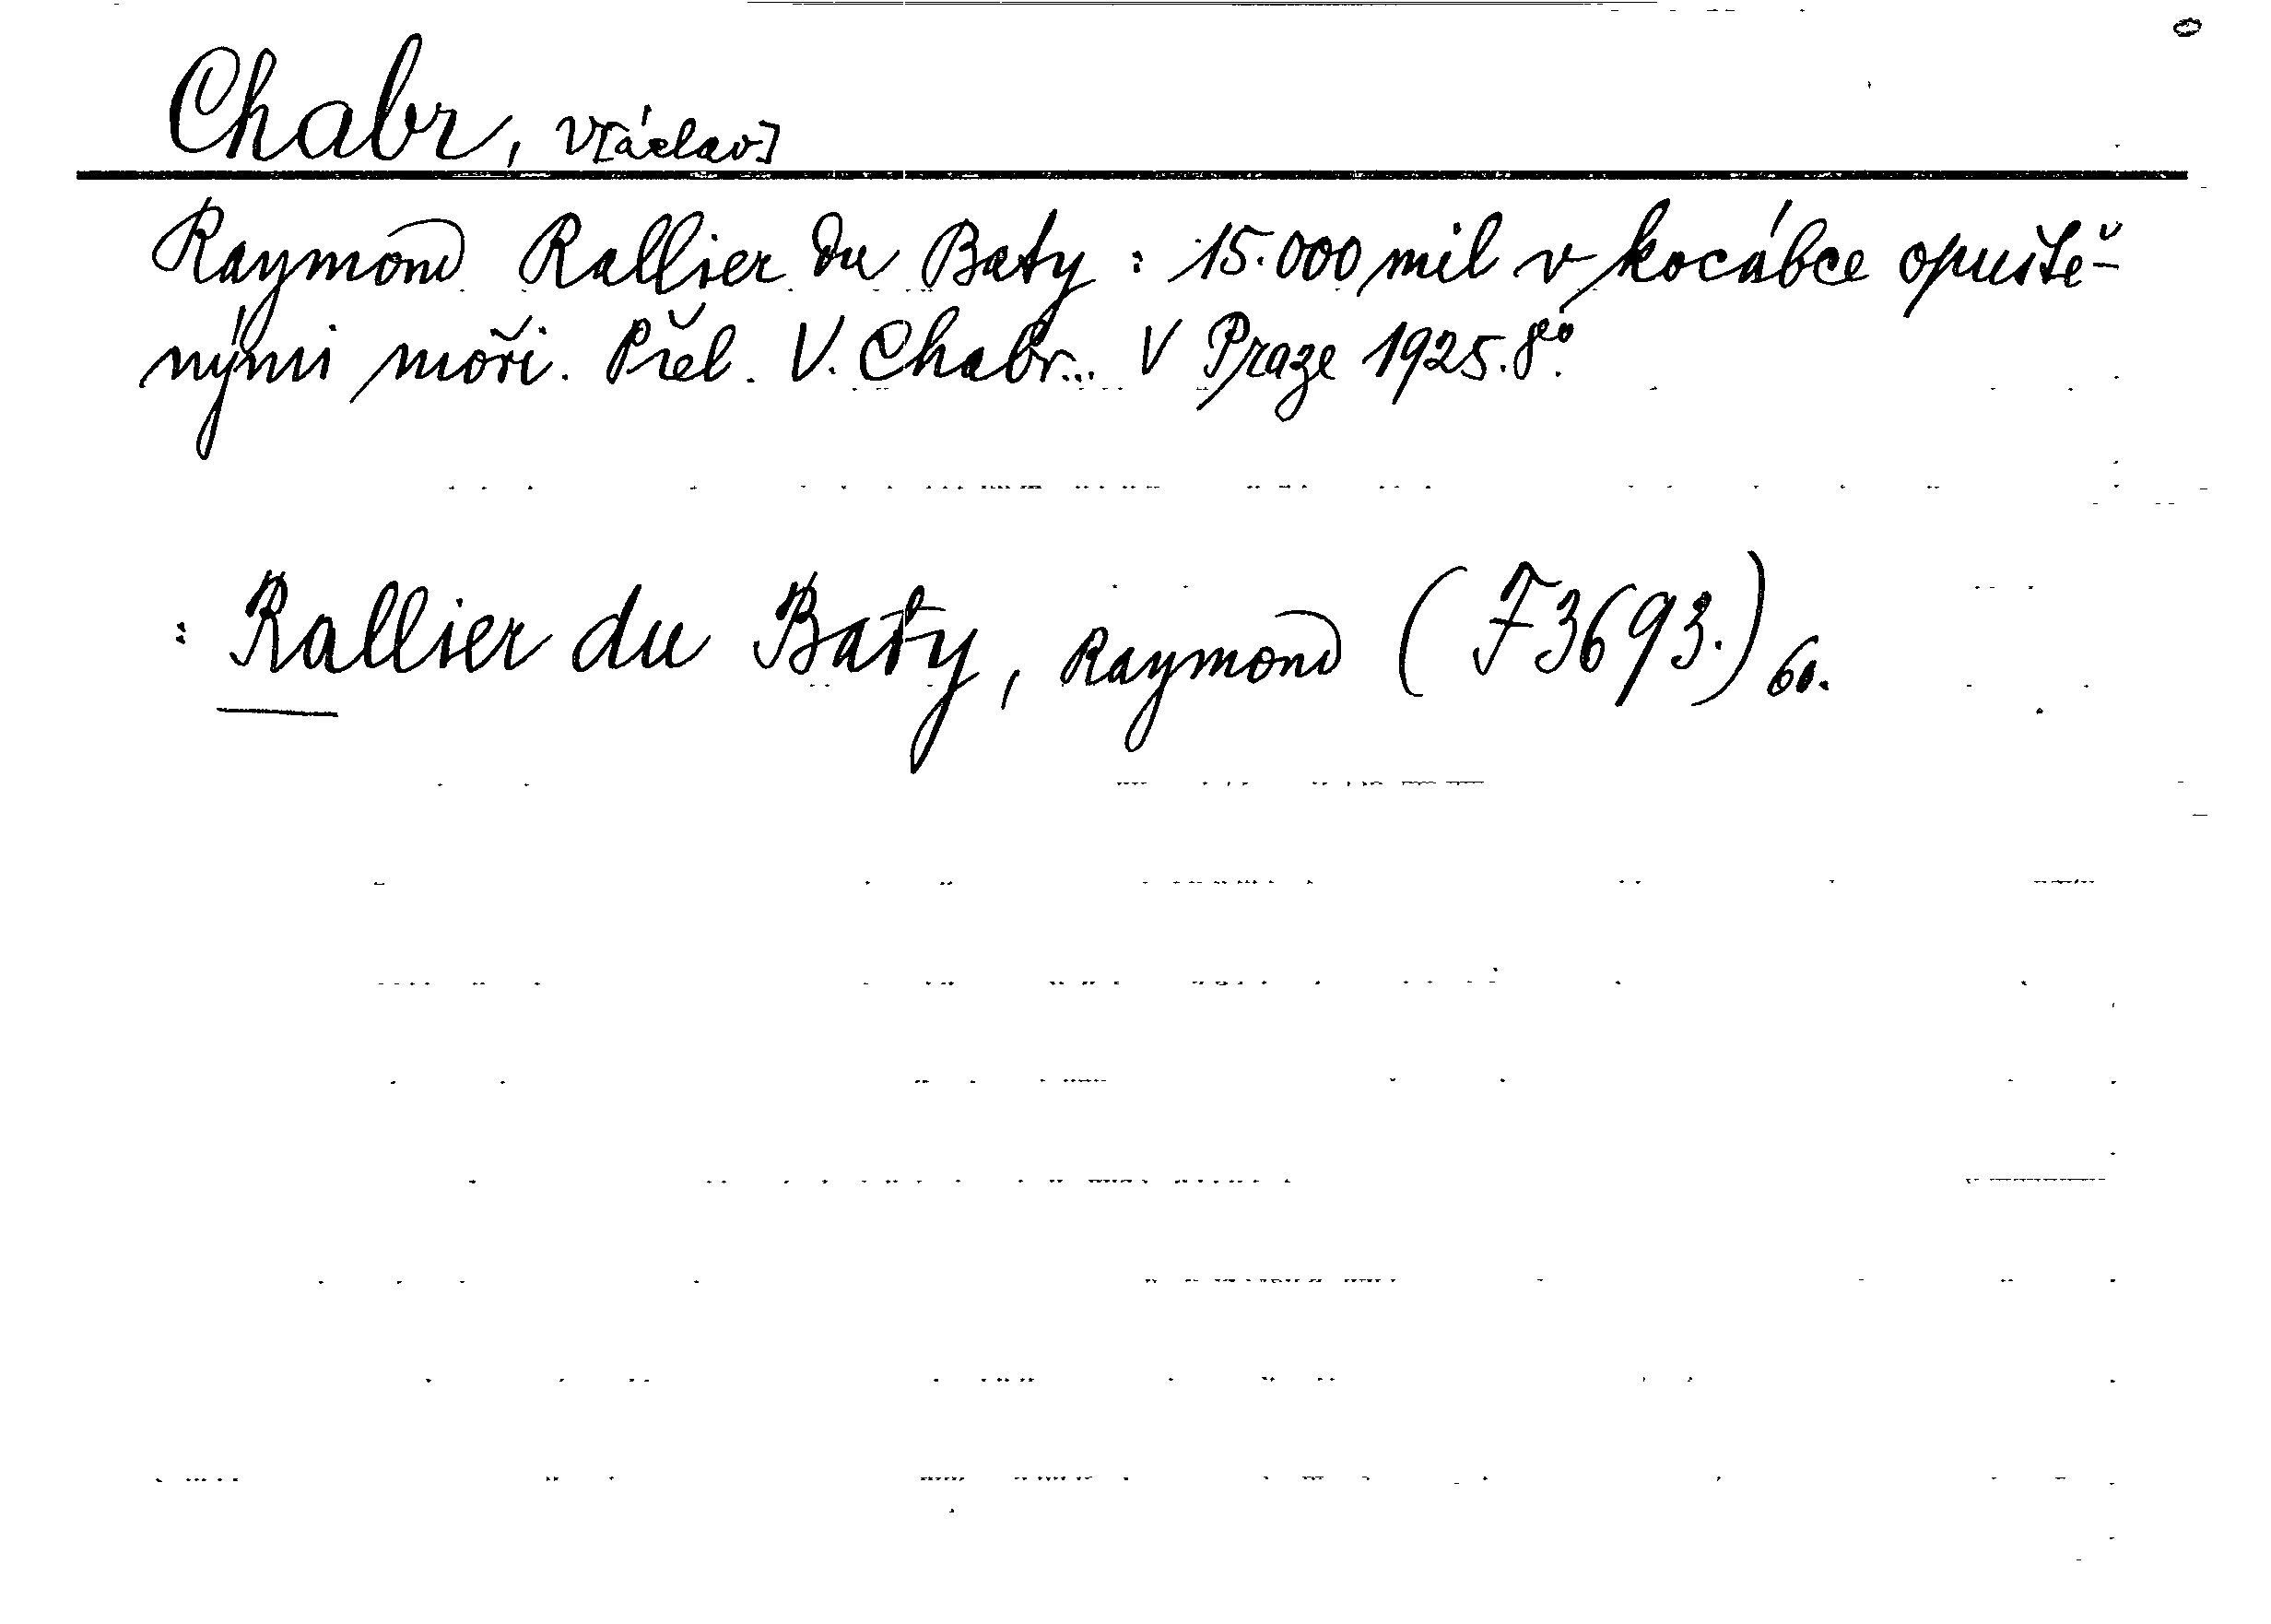 Chabr, V[áclav]
Raymond Rallier du Baty : 15.000 mil v kocábce opuště-
nými moři. Přel. V. Chabr... V Praze 1925. 8º.
: Rallier du Baty, Raymond (F 3693.) 60.